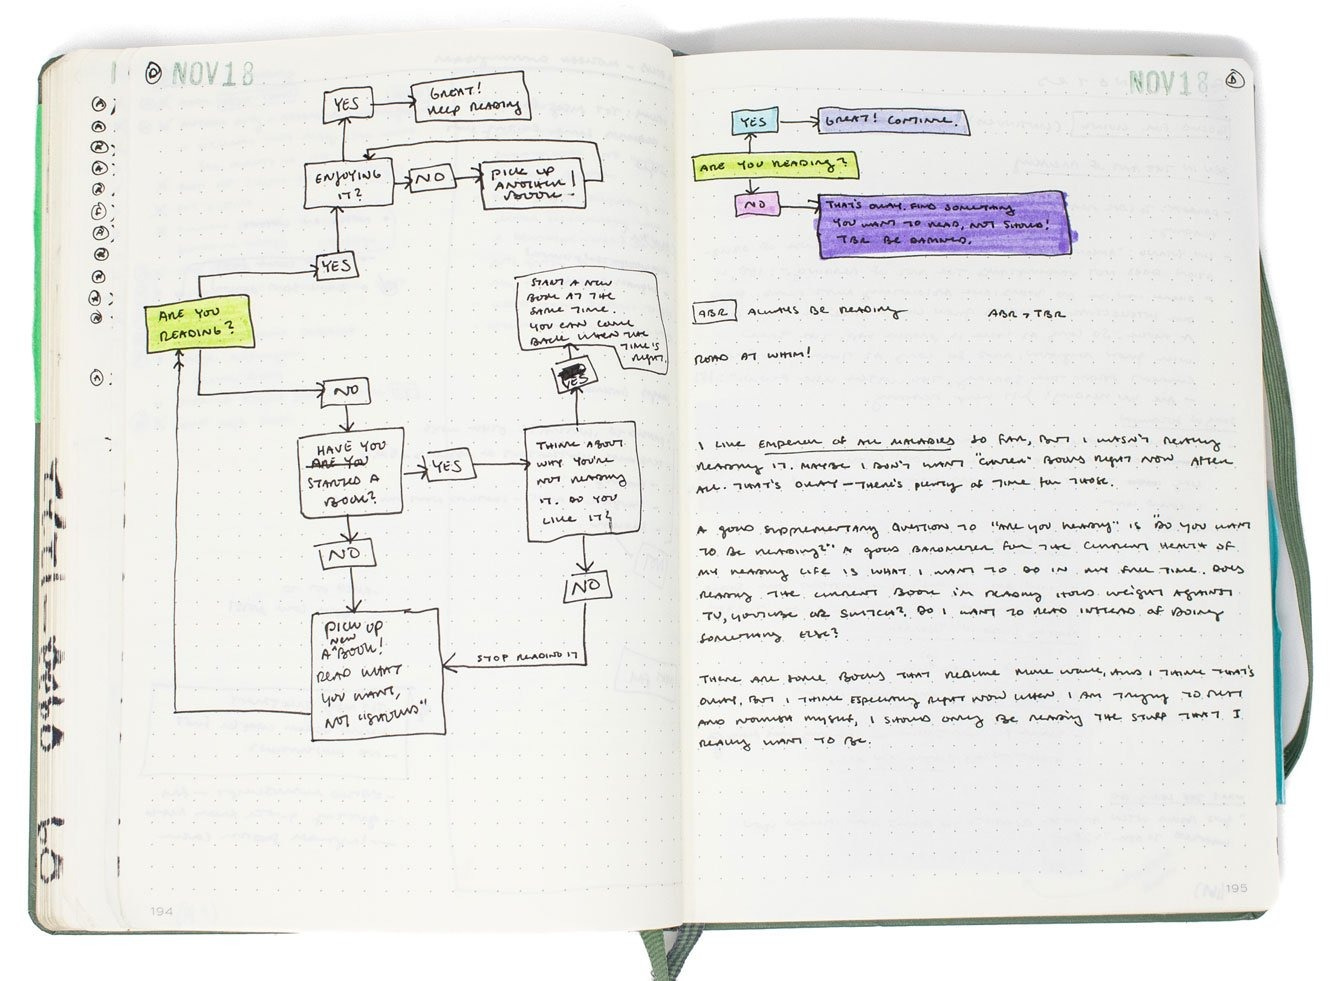 NOV18
YES
GREAT!
KEEP READING
ENJOYING
IT?
NO
PICK UP
ANOTHER
BOOK!
YES
ARE YOU
READING?
NO
HAVE YOU
ARE YOU
STARTED A
BOOK?
YES
THINK ABOUT
WHY YOU'RE
NOT READING
IT. DO YOU
LIKE IT?
YES
START A NEW
BOOK AT THE
SAME TIME.
YOU CAN COME
BACK WHEN THE
TIME IS
RIGHT.
NO
NO
STOP READING IT
PICK UP
NEW
A BOOK!
READ WHAT
YOU WANT,
NOT "SHOULDS"
194
NOV18
YES
GREAT! CONTINUE.
ARE YOU READING?
NO
THAT'S OKAY. FIND SOMETHING
YOU WANT TO READ, NOT SHOULD!
TBR BE DAMNED.
ABR ALWAYS BE READING
ABR > TBR
READ AT WHIM!
I LIKE EMPEROR OF ALL MALADIES SO FAR, BUT I WASN'T REALLY
READING IT. MAYBE I DON'T WANT BOOKS RIGHT NOW AFTER
ALL. THAT'S OKAY — THERE'S PLENTY OF TIME FOR THOSE.
A GOOD SUPPLEMENTARY QUESTION TO "ARE YOU READING" IS "DO YOU WANT
TO BE READING?" A GOOD BAROMETER FOR THE CURRENT HEALTH OF
MY READING LIFE IS WHAT I WANT TO DO IN MY FREE TIME. DOES
READING THE CURRENT BOOK I'M READING HOLD WEIGHT AGAINST
TV, YOUTUBE OR SWITCH? DO I WANT TO READ INSTEAD OF DOING
SOMETHING ELSE?
THERE ARE SOME BOOKS THAT REQUIRE MORE WORK, AND I THINK THAT'S
OKAY, BUT I THINK ESPECIALLY RIGHT NOW WHEN I AM TRYING TO REST
AND NOURISH MYSELF, I SHOULD ONLY BE READING THE STUFF THAT I
REALLY WANT TO BE.
195